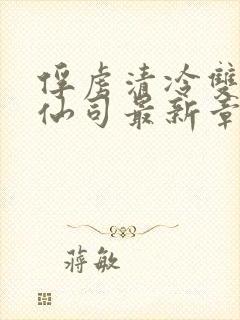 俘虏清冷雙
仙司最新章
蔣敏